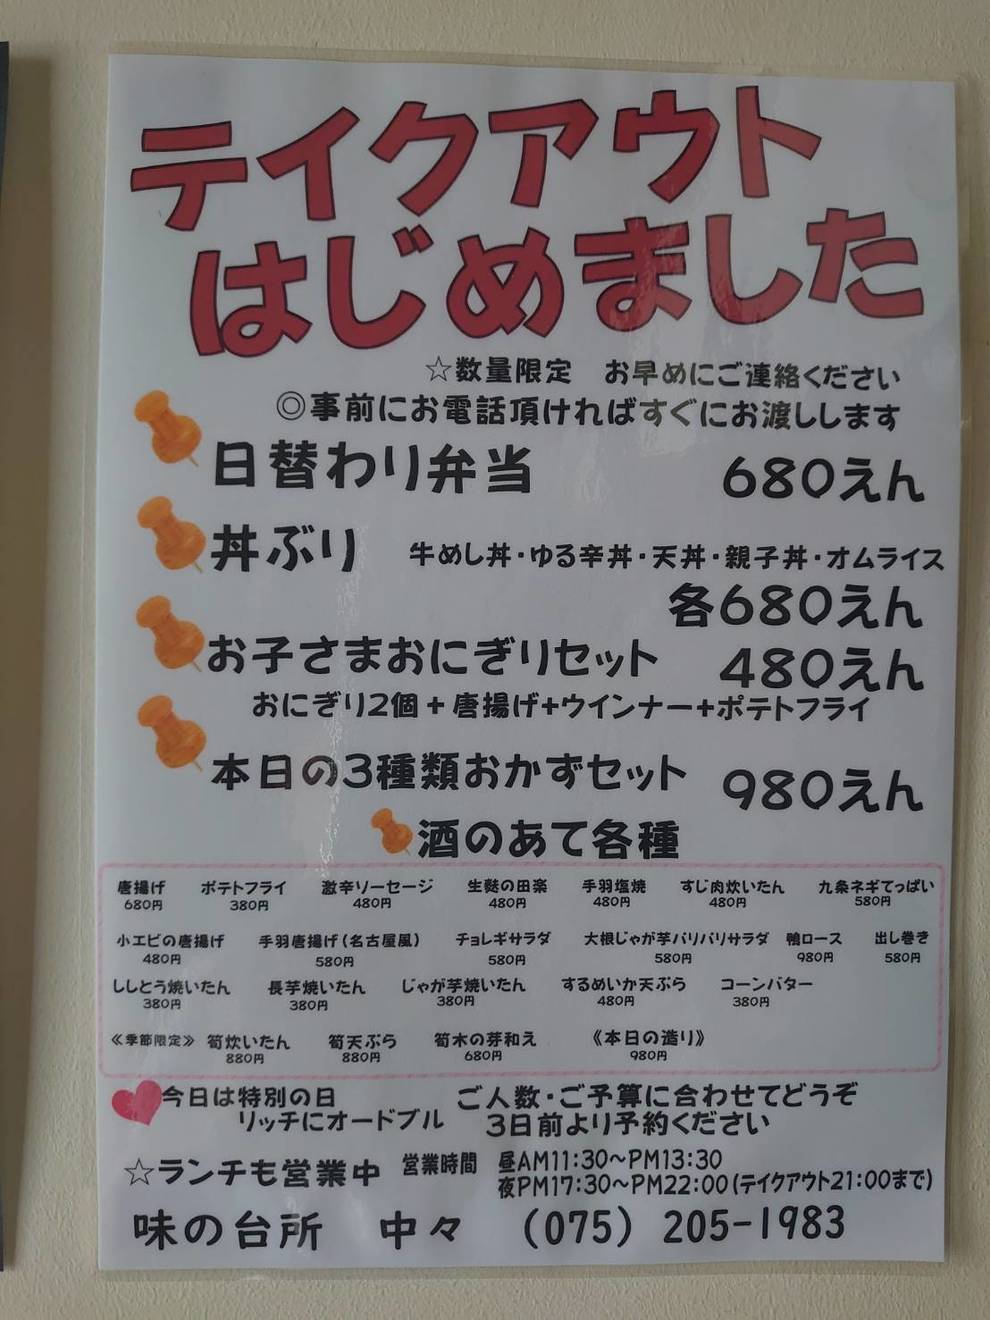 テイクアウト
はじめました
☆数量限定　お早めにご連絡ください
◎事前にお電話頂ければすぐにお渡しします
日替わり弁当　680えん
丼ぶり　牛めし丼・ゆる辛丼・天丼・親子丼・オムライス
各680えん
お子さまおにぎりセット　480えん
おにぎり2個＋唐揚げ+ウインナー+ポテトフライ
本日の3種類おかずセット　980えん
酒のあて各種
唐揚げ　ポテトフライ　激辛ソーセージ　生麩の田楽　手羽塩焼　すじ肉炊いたん　九条ネギてっぱい
680円　380円　480円　480円　480円　480円　580円
小エビの唐揚げ　手羽唐揚げ（名古屋風）　チョレギサラダ　大根じゃが芋パリパリサラダ　鴨ロース　出し巻き
480円　580円　580円　580円　980円　580円
ししとう焼いたん　長芋焼いたん　じゃが芋焼いたん　するめいか天ぷら　コーンバター
380円　380円　380円　480円　380円
≪季節限定≫　筍炊いたん　筍天ぷら　筍木の芽和え　《本日の造り》
880円　880円　680円　980円
今日は特別の日　ご人数・ご予算に合わせてどうぞ
リッチにオードブル　3日前より予約ください
☆ランチも営業中　営業時間　昼AM11:30〜PM13:30
夜PM17:30〜PM22:00（テイクアウト21:00まで）
味の台所　中々　（075）205-1983